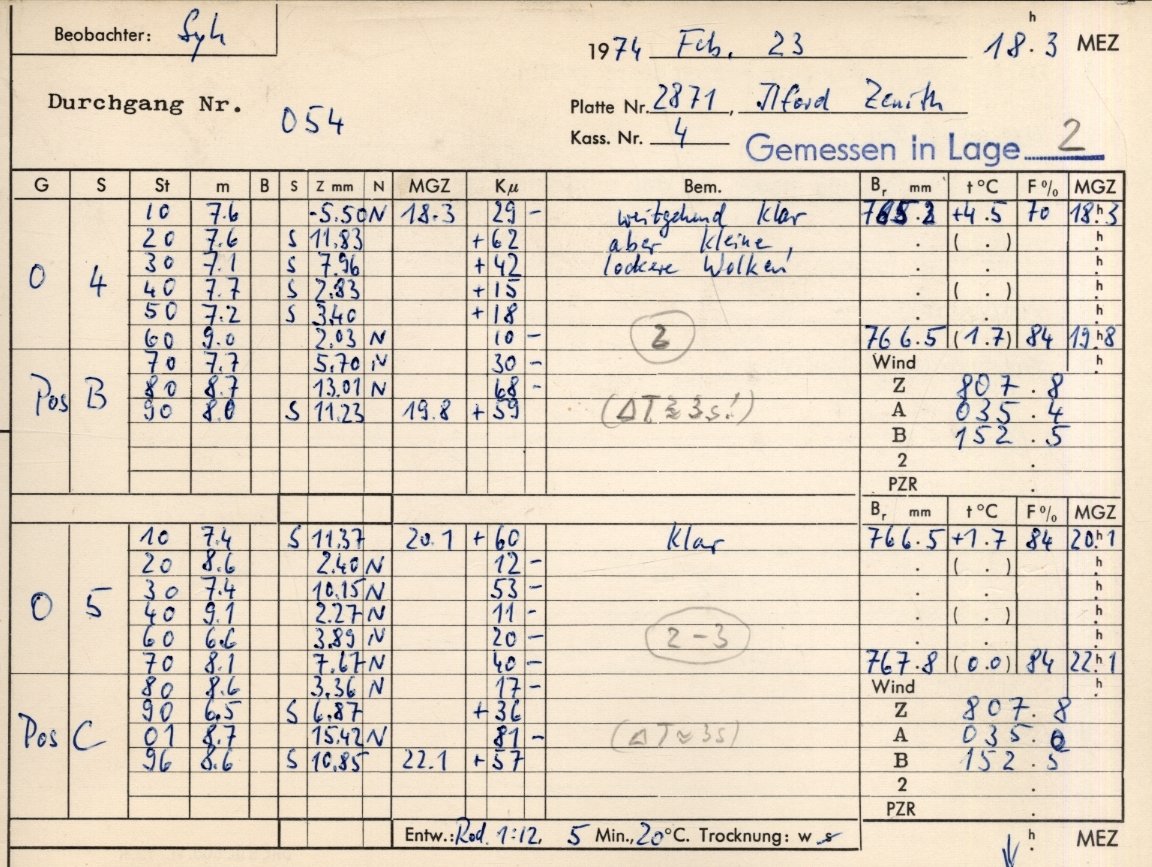 Beobachter: Syh
1974 Feb. 23 18.3 h MEZ
Durchgang Nr. 054
Platte Nr. 2871, Ilford Zenith
Kass. Nr. 4
Gemessen in Lage 2
G S St m B S Z mm N MGZ Kμ Bem. Br mm t °C F % MGZ
10 7.6 -5.50 N 18.3 29 - weitgehend klar 765.2 +4.5 70 18.h3
20 7.6 S 11.83 +62 aber kleine, . ( . ) h
0 4 30 7.1 S 7.96 +42 lockere Wolken! . . h
40 7.7 S 2.83 +15 . ( . ) h
50 7.2 S 3.40 +18 . . h
60 9.0 2.03 N 10 - 2 766.5 (1.7) 84 19.h8
70 7.7 5.70 N 30 - Wind h
Pos B 80 8.7 13.01 N 68 - Z 807.8
90 8.0 S 11.23 19.8 +59 (ΔT ≈ 3s!) A 035.4
B 152.5
2 .
PZR .
Br mm t °C F % MGZ
10 7.4 S 11.37 20.1 +60 klar 766.5 +1.7 84 20.h1
20 8.6 2.40 N 12 - . ( . ) h
30 7.4 10.15 N 53 - . . h
0 5 40 9.1 2.27 N 11 - . ( . ) h
60 6.6 3.89 N 20 - 2-3 . . h
70 8.1 7.67 N 40 - 767.8 (0.0) 84 22.h1
80 8.6 3.36 N 17 - Wind h
90 6.5 S 6.87 +36 Z 807.8
Pos C 01 8.7 15.42 N 81 - (ΔT ≈ 3s) A 035.0
96 8.6 S 10.85 22.1 +57 B 152.5
2 .
PZR .
Entw.: Rod. 1:12, 5 Min., 20°C. Trocknung: w s ↓ h MEZ